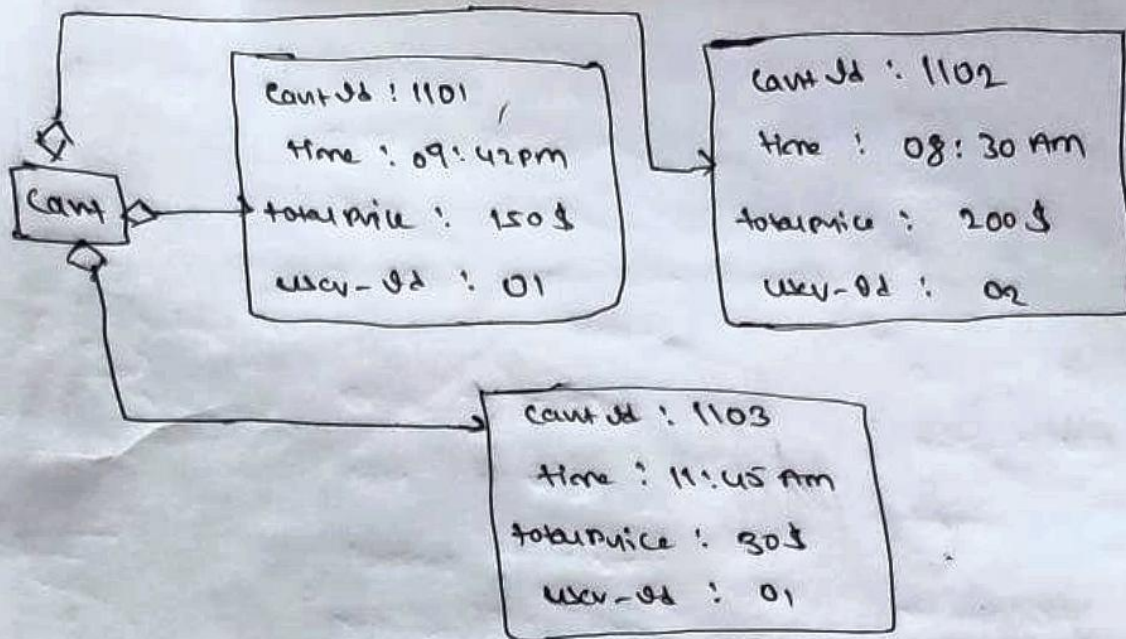 Cart
Cart Id : 1101
time : 09:42pm
total price : 150 $
user-Id : 01
Cart Id : 1102
time : 08:30 Am
total price : 200 $
user-Id : 02
Cart Id : 1103
time : 11:45 Am
total price : 30 $
user-Id : 01